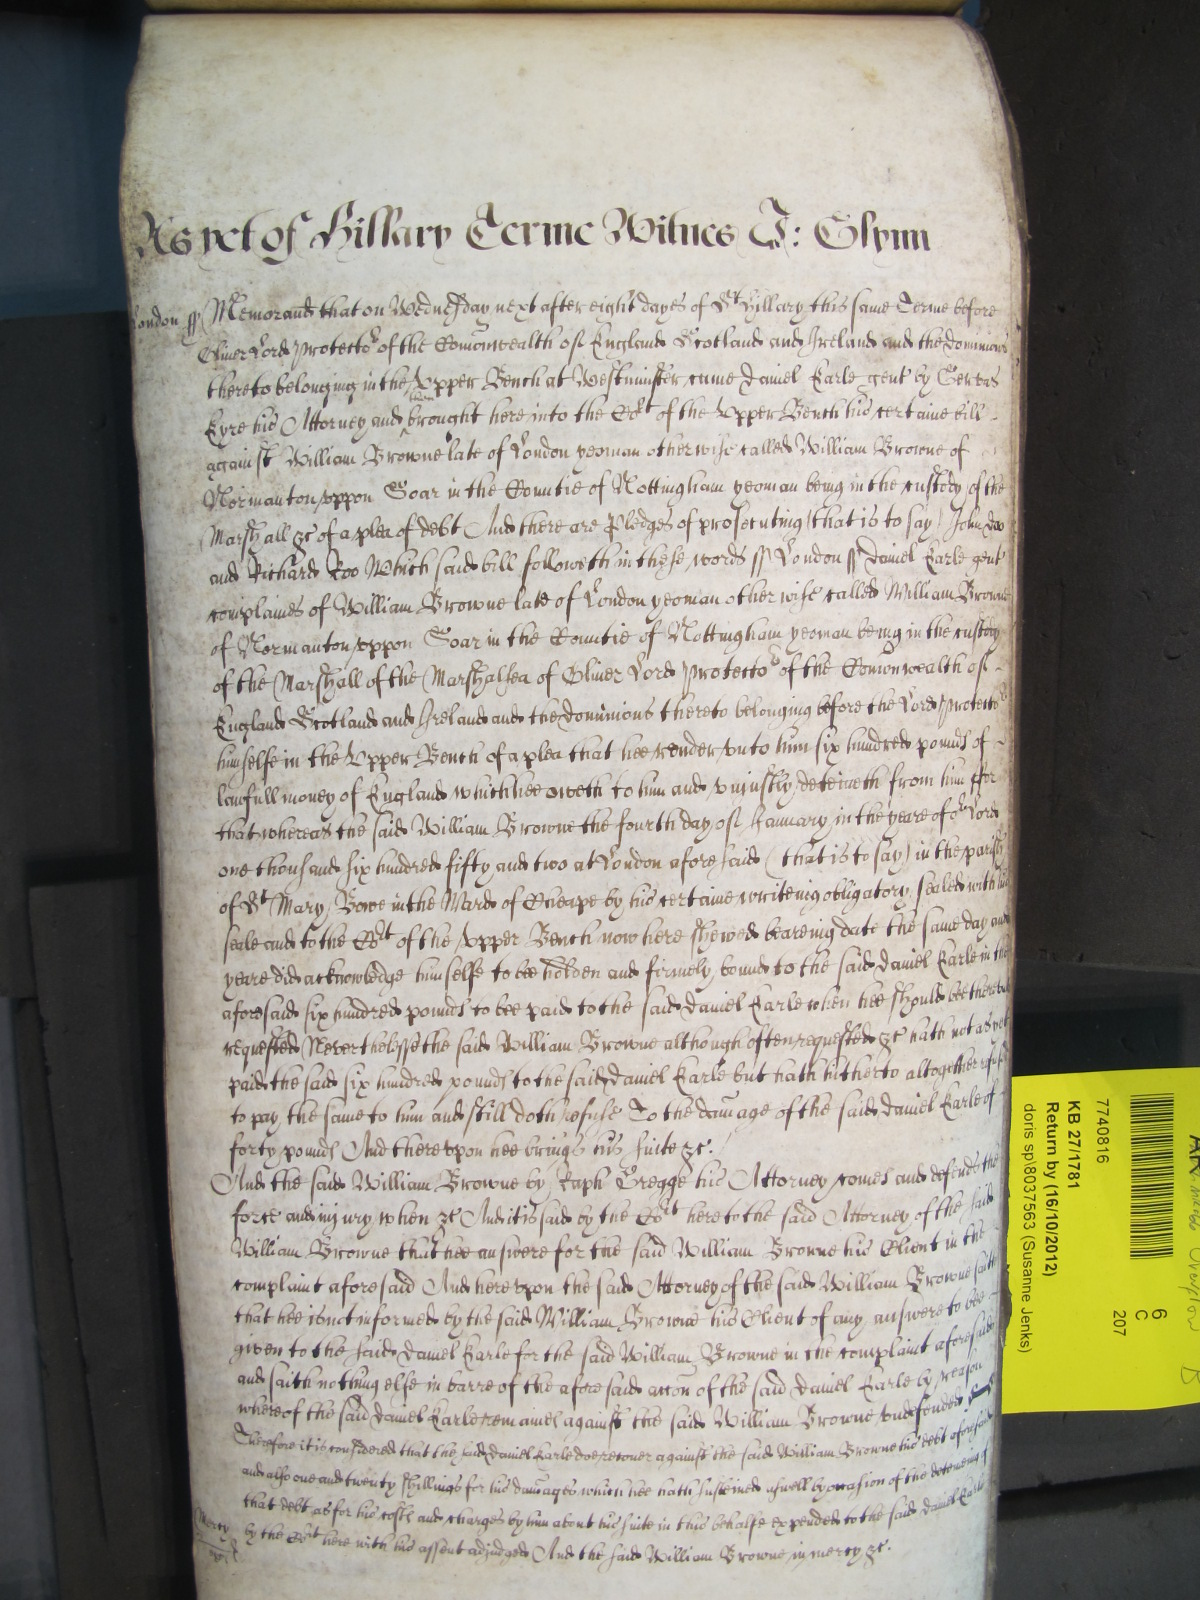 As yet of Hillary Terme Witnes J: Glynn
London ss Memorand that on Wednesday next after eight dayes of St Hillary this same Terme before
Oliver Lord Protector of the Comonwealth of England Scotland and Ireland and the dominions
thereto belonging in the Upper Bench at Westminster came Daniel Earle gent by Gervas
Eyre his Attorney and then brought here into the Cort of the Upper Bench his certaine bill
against William Browne late of London yeoman otherwise called William Browne of
Normanton uppon Soar in the Countie of Nottingham yeoman being in the custody of the
Marshall &c of a plea of debt And there are Pledges of prosecuting (that is to say) John Doo
and Richard Roo Which said bill followeth in these words ss London ss Daniel Earle gent
complaines of William Browne late of London yeoman otherwise called William Browne
of Normanton uppon Soar in the Countie of Nottingham yeoman being in the custody
of the Marshall of the Marshalsea of Oliver Lord Protector of the Comonwealth of
England Scotland and Ireland and the dominions thereto belonging before the Lord Protector
himselfe in the Upper Bench of a plea that hee render unto him six hundred pounds of
lawfull money of England which hee oweth to him and unjustly deteineth from him ffor
that whereas the said William Browne the fourth day of January in the yeare of or Lord
one thousand six hundred fifty and two at London aforesaid (that is to say) in the parish
of St Mary Bowe in the Ward of Cheape by his certaine writeing obligatory sealed with his
seale and to the Cort of the Upper Bench now here shewed beareing date the same day and
yeare did acknowledge himselfe to bee holden and firmely bound to the said Daniel Earle in the
aforesaid six hundred pounds to bee paid to the said Daniel Earle when hee should bee thereunto
requested Neverthelesse the said William Browne although often requested &c hath not as yet
paid the said six hundred pounds to the said Daniel Earle but hath hitherto altogether refused
to pay the same to him and still doth refuse To the damage of the said Daniel Earle of
forty pounds And thereupon hee brings his suite &c.
And the said William Browne by Raph Gregge his Attorney comes and defends the
force and injury when &c And it is said by the Cort here to the said Attorney of the said
William Browne that hee answere for the said William Browne his Client in the
complaint aforesaid And hereupon the said Attorney of the said William Browne saith
that hee is not informed by the said William Browne his Client of any answere to bee
given to the said Daniel Earle for the said William Browne in the complaint aforesaid
and saith nothing else in barre of the aforesaid accon of the said Daniel Earle by reason
whereof the said Daniel Earle remaines against the said William Browne undefended
Therefore it is considered that the said Daniel Earle doe recover against the said William Browne his debt aforesaid
and also one and twenty shillings for his damages which hee hath susteined aswell by occasion of the deteineing of
that debt as for his costs and charges by him about his suite in this behalfe expended to the said Daniel Earle
Mercy by the Cort here with his assent adjudged And the said William Browne in mercy &c.
7740816
KB 27/1781
Return by (16/10/2012)
doris sp\8037563 (Susanne Jenks)
6
C
207